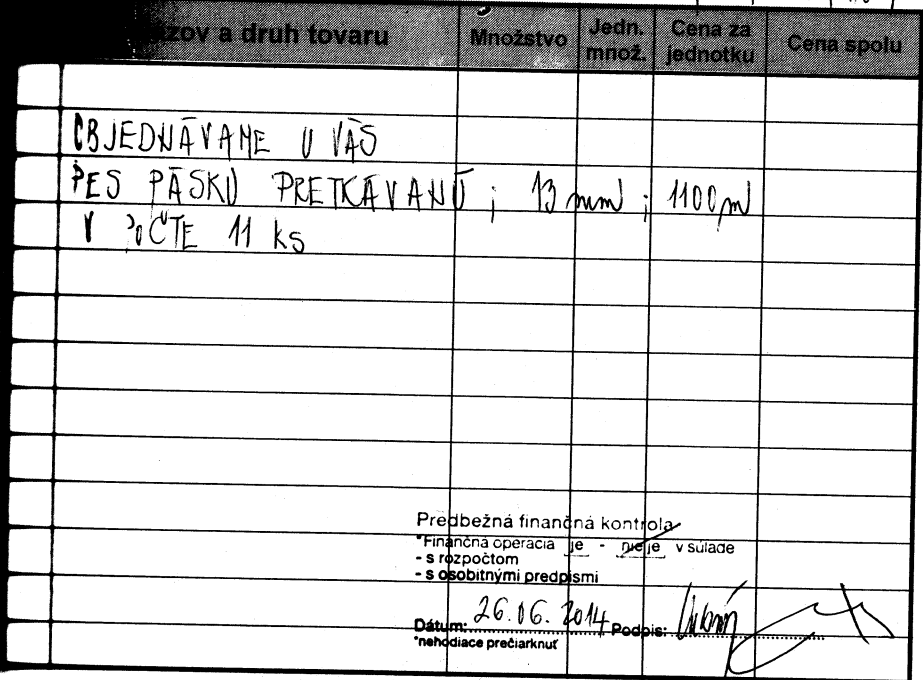 zov a druh tovaru Množstvo Jedn. množ. Cena za jednotku Cena spolu
OBJEDNÁVAME U VÁS
PES PÁSKU PRETKÁVANÚ ; 13 mm ; 1100 m
V POČTE 11 ks
Predbežná finančná kontrola
*Finančná operácia je - nie je v súlade
- s rozpočtom
- s osobitnými predpismi
Dátum: 26.06.2014 Podpis:
*nehodiace prečiarknuť